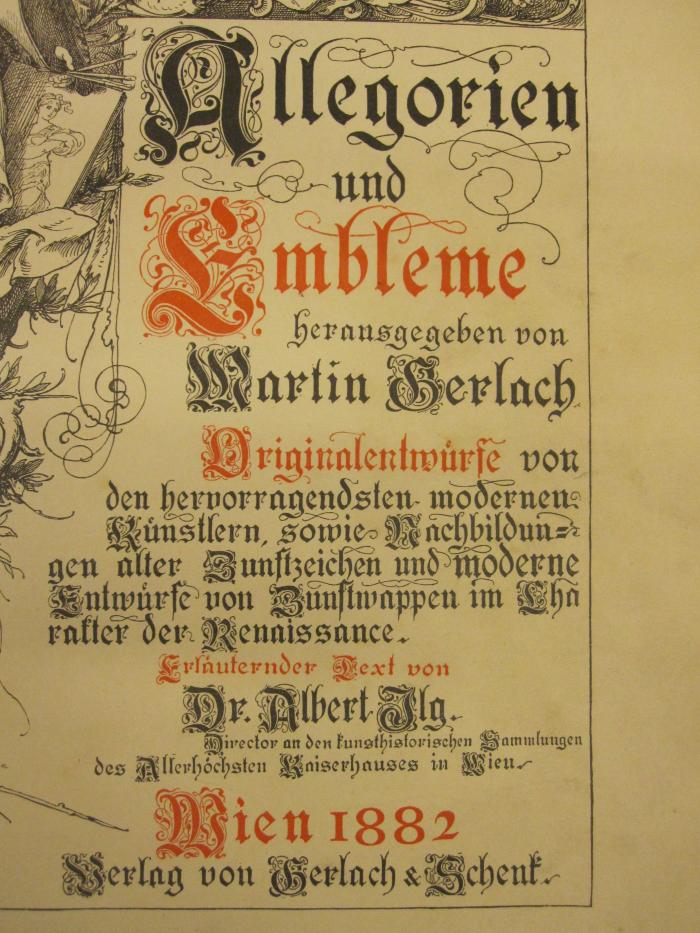 Allegorien
und
Embleme
herausgegeben von
Martin Gerlach
Originalentwürfe von
den hervorragendsten modernen
Künstlern, sowie Nachbildun=
gen alter Zunftzeichen und moderne
Entwürfe von Zunftwappen im Cha
rakter der Renaissance.
Erläuternder Text von
Dr. Albert Ilg.
Director an den kunsthistorischen Sammlungen
des Allerhöchsten Kaiserhauses in Wien.
Wien 1882
Verlag von Gerlach & Schenk.